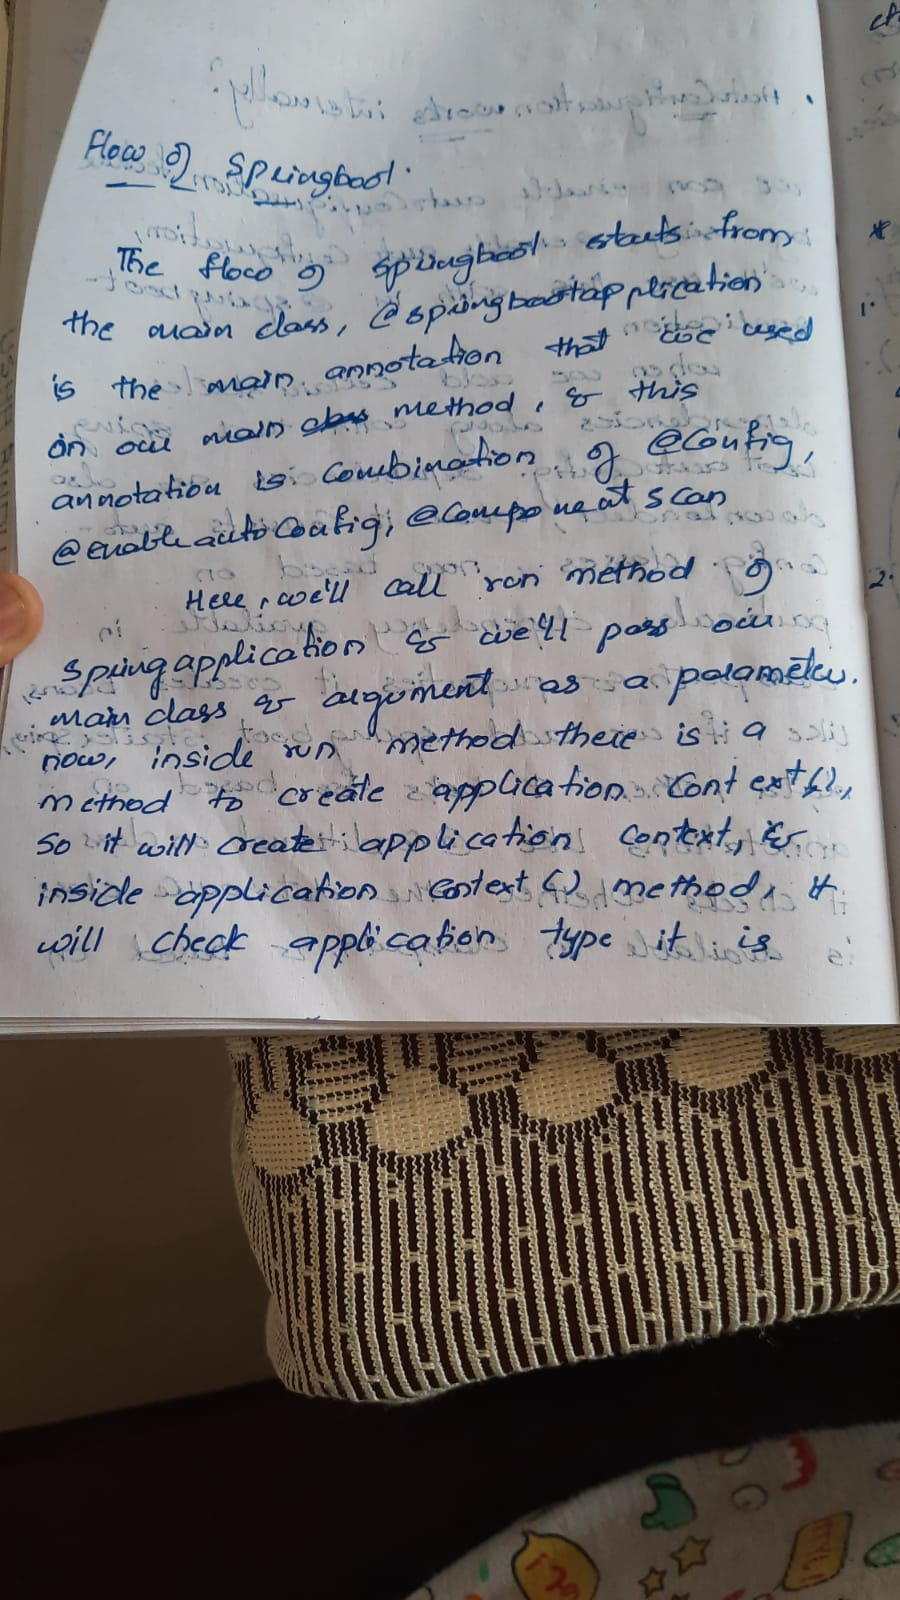 Flow of Springboot.
The flow of springboot starts from
the main class, @springbootapplication
is the main annotation that we used
on our main class method, & this
annotation is combination of @Config,
@enableautoConfig, @Component Scan
Here, we'll call run method of
Springapplication & we'll pass our
main class & argument as a parameter.
now, inside run method there is a
method to create application Context(),
So it will create application context, &
inside application Context() method, it
will check application type it is